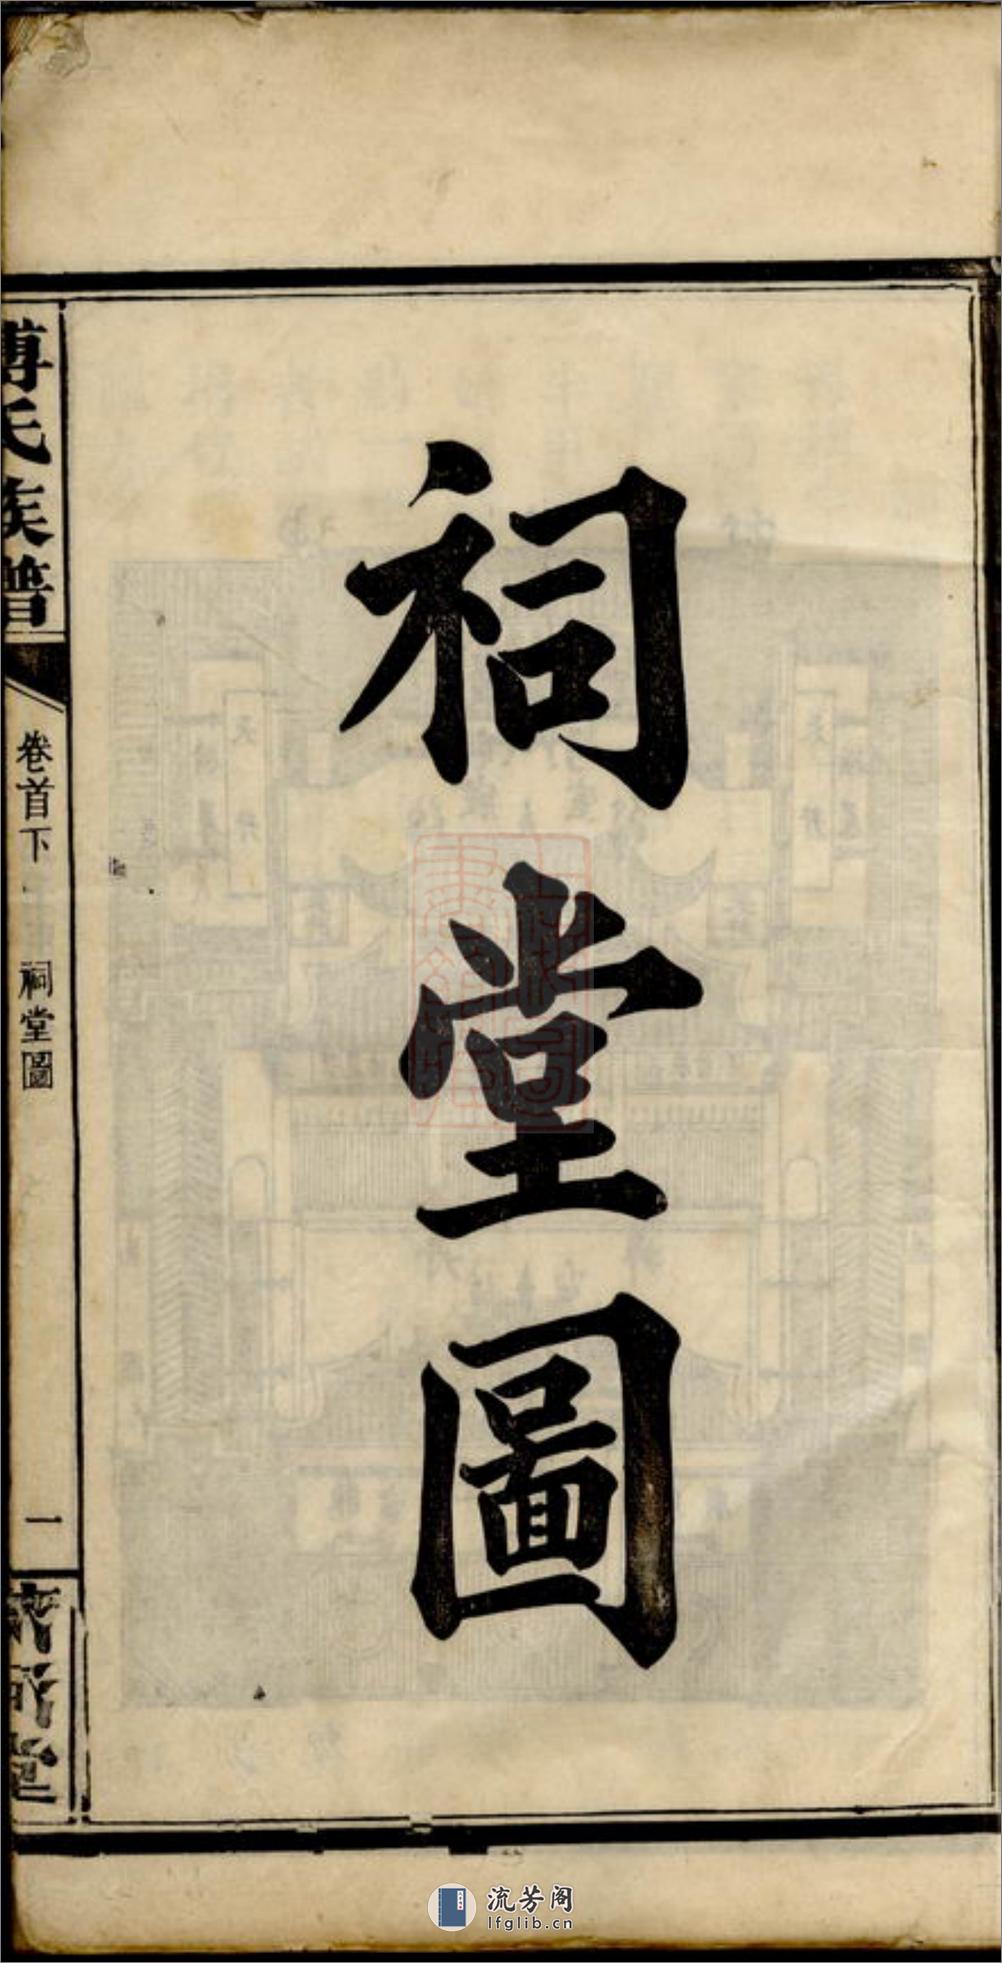 祠堂圖
傅氏族譜
卷首下
祠堂圖
一
流芳阁
lfglib.cn